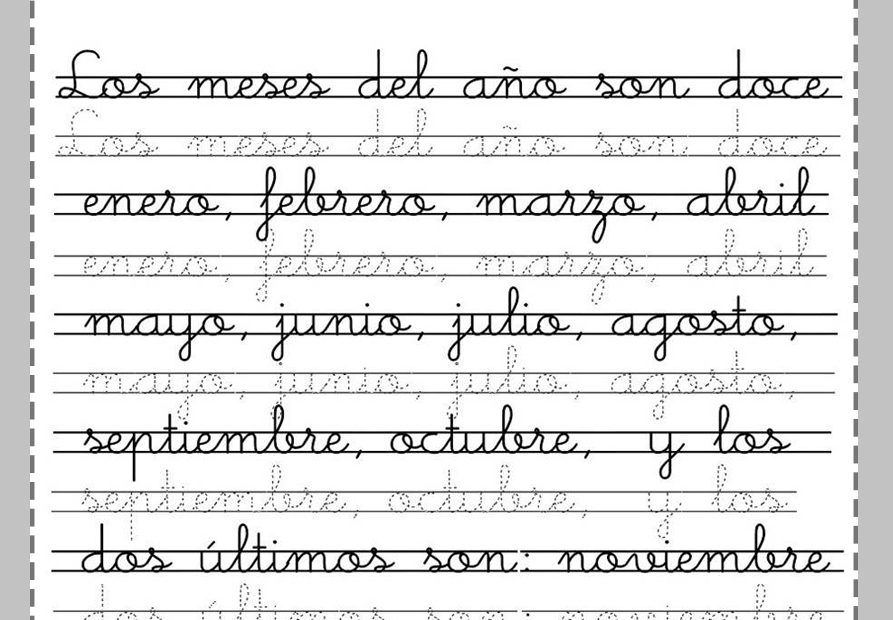 Los meses del año son doce
Los meses del año son doce
enero, febrero, marzo, abril
enero, febrero, marzo, abril
mayo, junio, julio, agosto,
mayo, junio, julio, agosto,
septiembre, octubre, y los
septiembre, octubre, y los
dos últimos son: noviembre
dos últimos son: noviembre